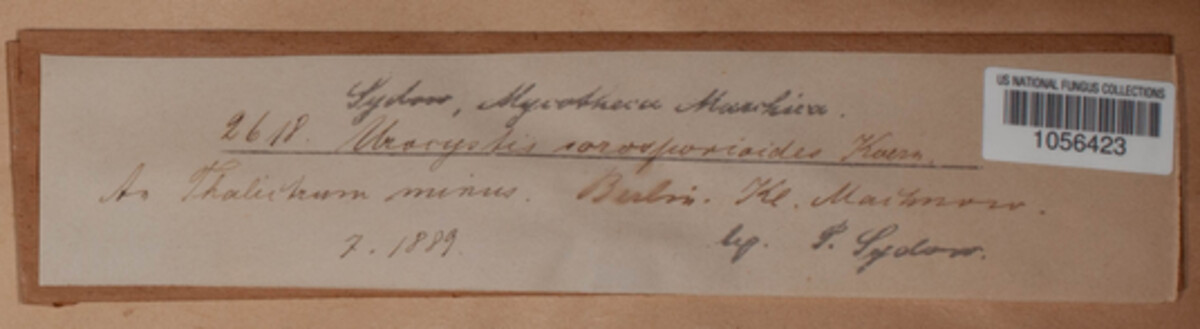 Sydow, Mycotheca Marchica.
2618. Urocystis sorosporioides Koern.
An Thalictrum minus. Berlin. Kl. Machnow.
7. 1889. leg. P. Sydow.
US NATIONAL FUNGUS COLLECTIONS
1056423